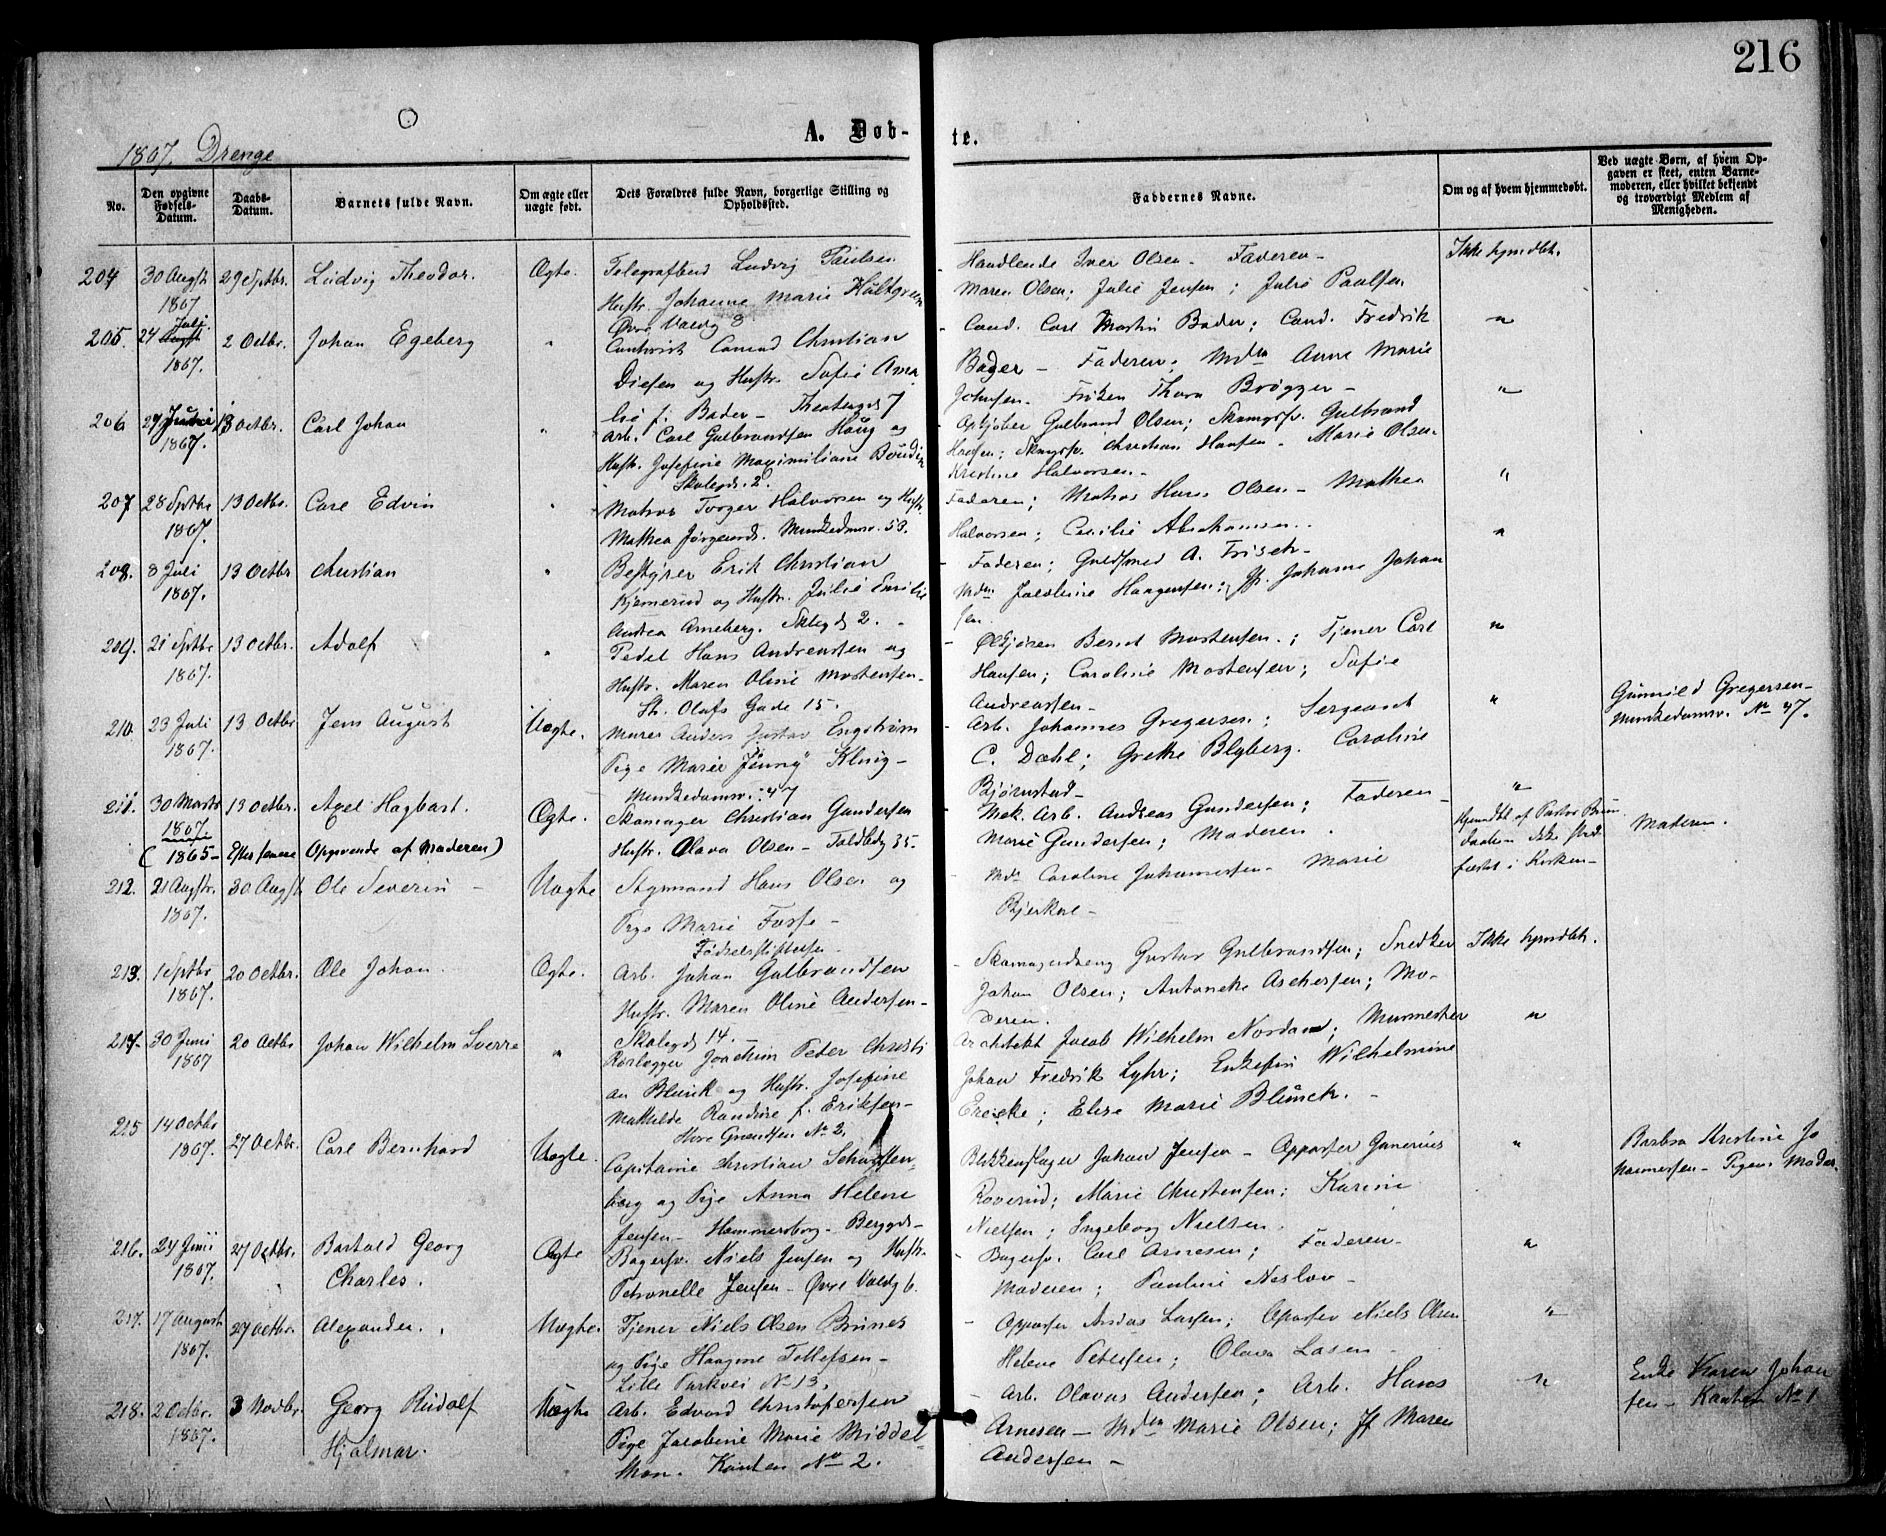 216
A. Døb-
te.
1867. Drenge
No.
Den opgivne Fødsels-Datum.
Daabs-Datum.
Barnets fulde Navn.
Om ægte eller uægte født.
Dets Forældres fulde Navn, borgerlige Stilling og Opholdssted.
Faddernes Navne.
Om og af hvem hjemmedøbt.
Ved uægte Børn, af hvem Op-
gaven er skeet, enten Barne-
moderen, eller hvilket bekjendt
og troværdigt Medlem af
Menigheden.
204 30 Augst 1867 29 Septbr. Ludvig Theodor. Ægte.
Telegrafbud Ludvig Paulsen
Hustr. Johanne Marie Hultgreen
Øvre Voldg 8
Handlende Iver Olsen - Faderen -
Maren Olsen; Julie Jensen; Julie Paulsen
Ikke hjmdbt.
205. 24 Juli 1867. 2 Octbr. Johan Egeberg "
Conrad Christian
Diesen og Hustr. Sofie Ama
lie f. Bader - Theatergd 7
Cand. Carl Martin Bader; Cand. Fredrik
Bader - Faderen; Mdm Anne Marie
Johnsen - Frøken Thora Brøgger -
"
206 1867. 13 Octbr. Carl Johan "
Arb. Carl Gulbrandsen Haug og
Hustr. Josefine Maximiliane
Skolegd. 2.
Gulbrand Olsen; Gulbrand
Hansen; Christian Hansen - Marie Olsen
Kristine Halvorsen -
"
207 28 Septbr 1867. 13 Octbr. Carl Edvin "
Matros Torger Halvorsen og Hustr.
Mathea Jørgensd. Munkedamsv. 53.
Faderen; Matros Hans Olsen - Mathea
Halvorsen; Cecilie Abrahamsen.
"
208. 8 Juli 1867. 13 Octbr Christian "
Bestyrer Erik Christian
Kjemerud og Hustr. Julie Emilie
Andrea Arneberg. Skolegd 2.
Faderen; Guldsmed A. Frisch -
Mdm Jacobine Haagensen; Jf. Johanne Johan
sen.
"
209. 21 Septbr 1867. 13 Octbr. Adolf "
Pedel Hans Andreassen og
Hustr. Maren Oline Mortensen -
St. Olafs Gade 15 -
Bernt Mortensen.; Tjener Carl
Hansen; Caroline Mortensen; Sofie
Andreassen -
"
210. 23 Juli 1867. 13 Octbr. Jens August Uægte.
Murer Anders Gustav Engstrøm
Pige Marie Jenny Kling -
Munkedamsv. 47
Arb. Johannes Gregersen; Sergeant
C. Dahl; Grethe Blyberg. Caroline
Bjørnstad -
"
Gunnild Gregersen -
Munkedamsv. No 47.
211. 30 Marts 1867. 13 Octbr. Axel Hagbart. Ægte.
(1865 - Efter senere Opgivende af Moderen)
Skomager Christian Gundersen
Hustr. Olava Olsen - 35 -
Mek. Arb. Andreas Gundersen; Faderen -
Marie Gundersen; Moderen.
"
212. 21 Augst. 1867. 30 Augst Ole Severin - Uægte
Hans Olsen og
Pige Marie Fosse -
Fødselsstiftelsen -
Mdm Caroline Johannessen - Marie
Bjerke -
Hjmdbt. af Pastor Bruun
Daaben ikke stad
fæstet i Kirken -
Moderen.
213. 1 Septbr 1867. 20 Octbr. Ole Johan. Ægte.
Arb. Johan Gulbrandsen
Hustr. Maren Oline Andersen -
Skolegd 14. -
Skomagerdreng Gustav Gulbrandsen; Snedker
Johan Olsen; Antoneke Aschersen; Mo-
deren.
Ikke hjmdbt.
214. 30 Juni 1867 20 Octbr Johan Wilhelm Sverre "
Rørlægger Joachim Peter Christi
an Blunck og Hustr. Josefine
Mathilde Randine f. Eriksen -
No 2.
Architekt Jacob Wilhelm Nordan; Murmester
Johan Fredrik Lyhr; Enkefru Wilhelmine
; Elise Marie Blunck. -
"
215 14 Octbr 1867. 27 Octbr. Carl Bernhard Uægte.
Capitaine Christian
og Pige Anna Helene
Jensen - Hammersborg - Berggd -
Blikkenslager Johan Jensen - Oppasser Gunerius
Roverud; Marie Christensen; Karine
Nielsen; Ingeborg Nielsen.
"
Barbra Kristine Jo
hannessen - Pigens Moder.
216. 24 Juni 1867. 27 Octbr. Bartold Georg
Charles. Ægte
Bagersv. Niels Jensen og Hustr.
Petronelle Jensen - Øvre Voldg 6.
Bagersv. Carl Arnesen; Faderen -
Moderen; Pauline Neslov -
"
217. 17 August 1867. 27 Octbr. Alexander. Uægte.
Tjener Niels Olsen Brunes
og Pige Haagine Tollefsen -
Lille Parkvei No 13.
Oppasser Andas Larsen; Oppasser Niels Olsen
Helene Petersen; Olava Lasen -
"
218. 2 Octbr. 1867. 3 Novbr. Georg Rudolf
Hjalmar. Uægte
Arb. Edvard Christofersen
Pige Jacobine Marie Middel
thon. Kanten No 2.
Arb. Olavus Andersen; Arb. Hans
Arnesen - Mdm Marie Olsen; Jf Maren
Andersen -
"
Enke Karen Johan
sen - Kanten No 1